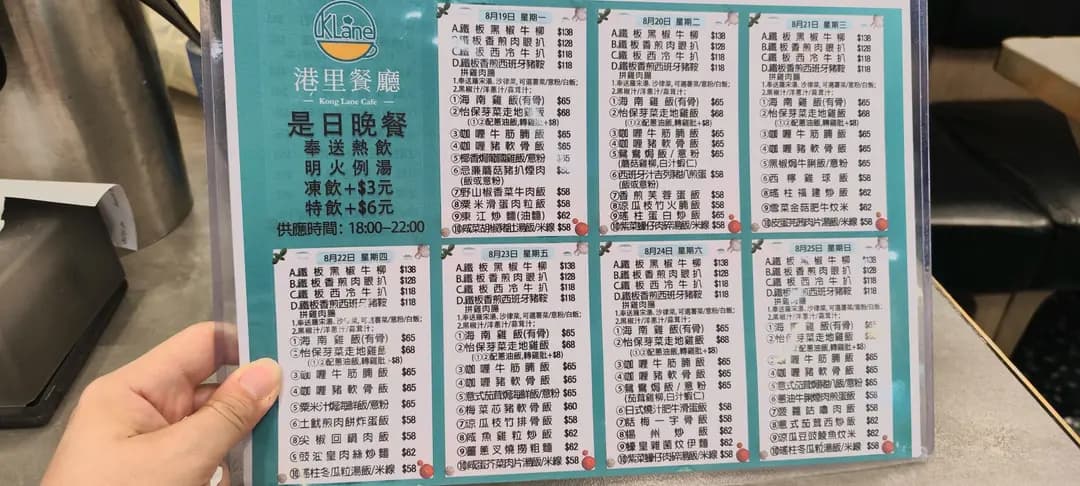 KLane
港里餐廳
Kong Lane Cafe
是日晚餐
奉送熱飲
明火例湯
凍飲+$3元
特飲+$6元
供應時間：18:00-22:00
8月19日 星期一
A.鐵板黑椒牛柳 $138
B.鐵板香煎肉眼扒 $128
C.鐵板西冷牛扒 $118
D.鐵板香煎西班牙豬鞍 $118
拼雞肉腸
1.奉送羅宋湯, 沙律菜, 可選薯菜/意粉/白飯;
2.黑椒汁/洋蔥汁/蒜茸汁;
①海南雞飯(有骨) $65
②怡保芽菜走地雞飯 $68
(①②配蔥油飯,轉雞肶+$8)
③咖喱牛筋腩飯 $65
④咖喱豬軟骨飯 $65
⑤椰香焗葡國雞飯/意粉
⑥忌廉蘑菇豬扒燴肉
(飯或意粉)
⑦野山椒香菜牛肉飯 $58
⑧粟米滑蛋肉粒飯 $58
⑨東江炒麵(油麵) $62
⑩咸菜胡椒豬肚湯飯/米線 $58
8月20日 星期二
A.鐵板黑椒牛柳 $138
B.鐵板香煎肉眼扒 $128
C.鐵板西冷牛扒 $118
D.鐵板香煎西班牙豬鞍 $118
拼雞肉腸
1.奉送羅宋湯, 沙律菜, 可選薯菜/意粉/白飯;
2.黑椒汁/洋蔥汁/蒜茸汁;
①海南雞飯(有骨) $65
②怡保芽菜走地雞飯 $68
(①②配蔥油飯,轉雞肶+$8)
③咖喱牛筋腩飯 $65
④咖喱豬軟骨飯 $65
⑤鴛鴦焗飯/意粉 $65
(蘑菇雞柳,白汁蝦仁)
⑥西班牙汁吉列豬扒煎蛋 $58
(飯或意粉)
⑦香煎芙蓉蛋飯 $58
⑧涼瓜枝竹火腩飯 $58
⑨瑤柱蛋白炒飯 $65
⑩紫菜蠔仔肉碎湯飯/米線 $58
8月21日 星期三
A.鐵板黑椒牛柳 $138
B.鐵板香煎肉眼扒 $128
C.鐵板西冷牛扒 $118
D.鐵板香煎西班牙豬鞍 $118
拼雞肉腸
1.奉送羅宋湯, 沙律菜, 可選薯菜/意粉/白飯;
2.黑椒汁/洋蔥汁/蒜茸汁;
①海南雞飯(有骨) $65
②怡保芽菜走地雞飯 $68
(①②配蔥油飯,轉雞肶+$8)
③咖喱牛筋腩飯 $65
④咖喱豬軟骨飯 $65
⑤黑椒焗牛脷飯/意粉 $65
⑥西檸雞球飯 $58
⑧瑤柱福建炒飯 $62
⑨雪菜金菇肥牛炆米 $62
⑩皮蛋芫茜肉片湯飯/米線 $58
8月22日 星期四
A.鐵板黑椒牛柳 $138
B.鐵板香煎肉眼扒 $128
C.鐵板西冷牛扒 $118
D.鐵板香煎西班牙豬鞍 $118
拼雞肉腸
1.奉送羅宋湯, 沙律菜, 可選薯菜/意粉/白飯;
2.黑椒汁/洋蔥汁/蒜茸汁;
①海南雞飯(有骨) $65
②怡保芽菜走地雞飯 $68
(①②配蔥油飯,轉雞肶+$8)
③咖喱牛筋腩飯 $65
④咖喱豬軟骨飯 $65
⑤粟米汁焗海鮮飯/意粉 $65
⑥土魷煎肉餅炸蛋飯 $58
⑧尖椒回鍋肉飯 $58
⑤豉油皇肉絲炒麵 $62
⑩瑤柱冬瓜粒湯飯/米線 $58
8月23日 星期五
A.鐵板黑椒牛柳 $138
B.鐵板香煎肉眼扒 $128
C.鐵板西冷牛扒 $118
D.鐵板香煎西班牙豬鞍 $118
拼雞肉腸
1.奉送羅宋湯, 沙律菜, 可選薯菜/意粉/白飯;
2.黑椒汁/洋蔥汁/蒜茸汁;
①海南雞飯(有骨) $65
②怡保芽菜走地雞飯 $68
(①②配蔥油飯,轉雞肶+$8)
③咖喱牛筋腩飯 $65
④咖喱豬軟骨飯 $65
⑤意式茄茸焗海鮮飯/意粉 $65
⑥梅菜芯豬軟骨飯 $60
⑦涼瓜枝竹排骨飯 $58
⑧咸魚雞粒炒飯 $62
⑨薑蔥叉燒撈粗麵 $62
⑩咸蛋芥菜肉片湯飯/米線 $58
8月24日 星期六
A.鐵板黑椒牛柳 $138
B.鐵板香煎肉眼扒 $128
C.鐵板西冷牛扒 $118
D.鐵板香煎西班牙豬鞍 $118
拼雞肉腸
1.奉送羅宋湯, 沙律菜, 可選薯菜/意粉/白飯;
2.黑椒汁/洋蔥汁/蒜茸汁;
①海南雞飯(有骨) $65
②怡保芽菜走地雞飯 $68
(①②配蔥油飯,轉雞肶+$8)
③咖喱牛筋腩飯 $65
④咖喱豬軟骨飯 $65
⑤鴛鴦焗飯/意粉 $65
(茄茸雞柳,白汁蝦仁)
⑥日式燒汁肥牛滑蛋飯 $58
⑦話梅一字骨飯 $58
⑧揚州炒飯 $62
⑨蠔皇雜菌炆伊麵 $62
⑩紫菜蠔仔肉碎湯飯/米線 $58
8月25日 星期日
A.鐵板黑椒牛柳 $138
B.鐵板香煎肉眼扒 $128
C.鐵板西冷牛扒 $118
D.鐵板香煎西班牙豬鞍 $118
1.奉送羅宋湯, 沙律菜, 可選薯菜/意粉/白飯;
2.黑椒汁/洋蔥汁/蒜茸汁;
①海南雞飯(有骨)
②怡保芽菜走地雞飯
②配蔥油飯,轉雞肶+$8)
咖喱牛筋腩飯 $65
④咖喱豬軟骨飯 $65
⑤意式茄茸焗豬扒飯/意粉 $65
⑥蔥油牛脷燴肉煎蛋飯 $58
⑦菠蘿咕嚕肉飯 $58
⑧意式茄茸西炒飯 $62
⑨涼瓜豆豉鯪魚炆米 $62
⑩瑤柱冬瓜粒湯飯/米線 $58